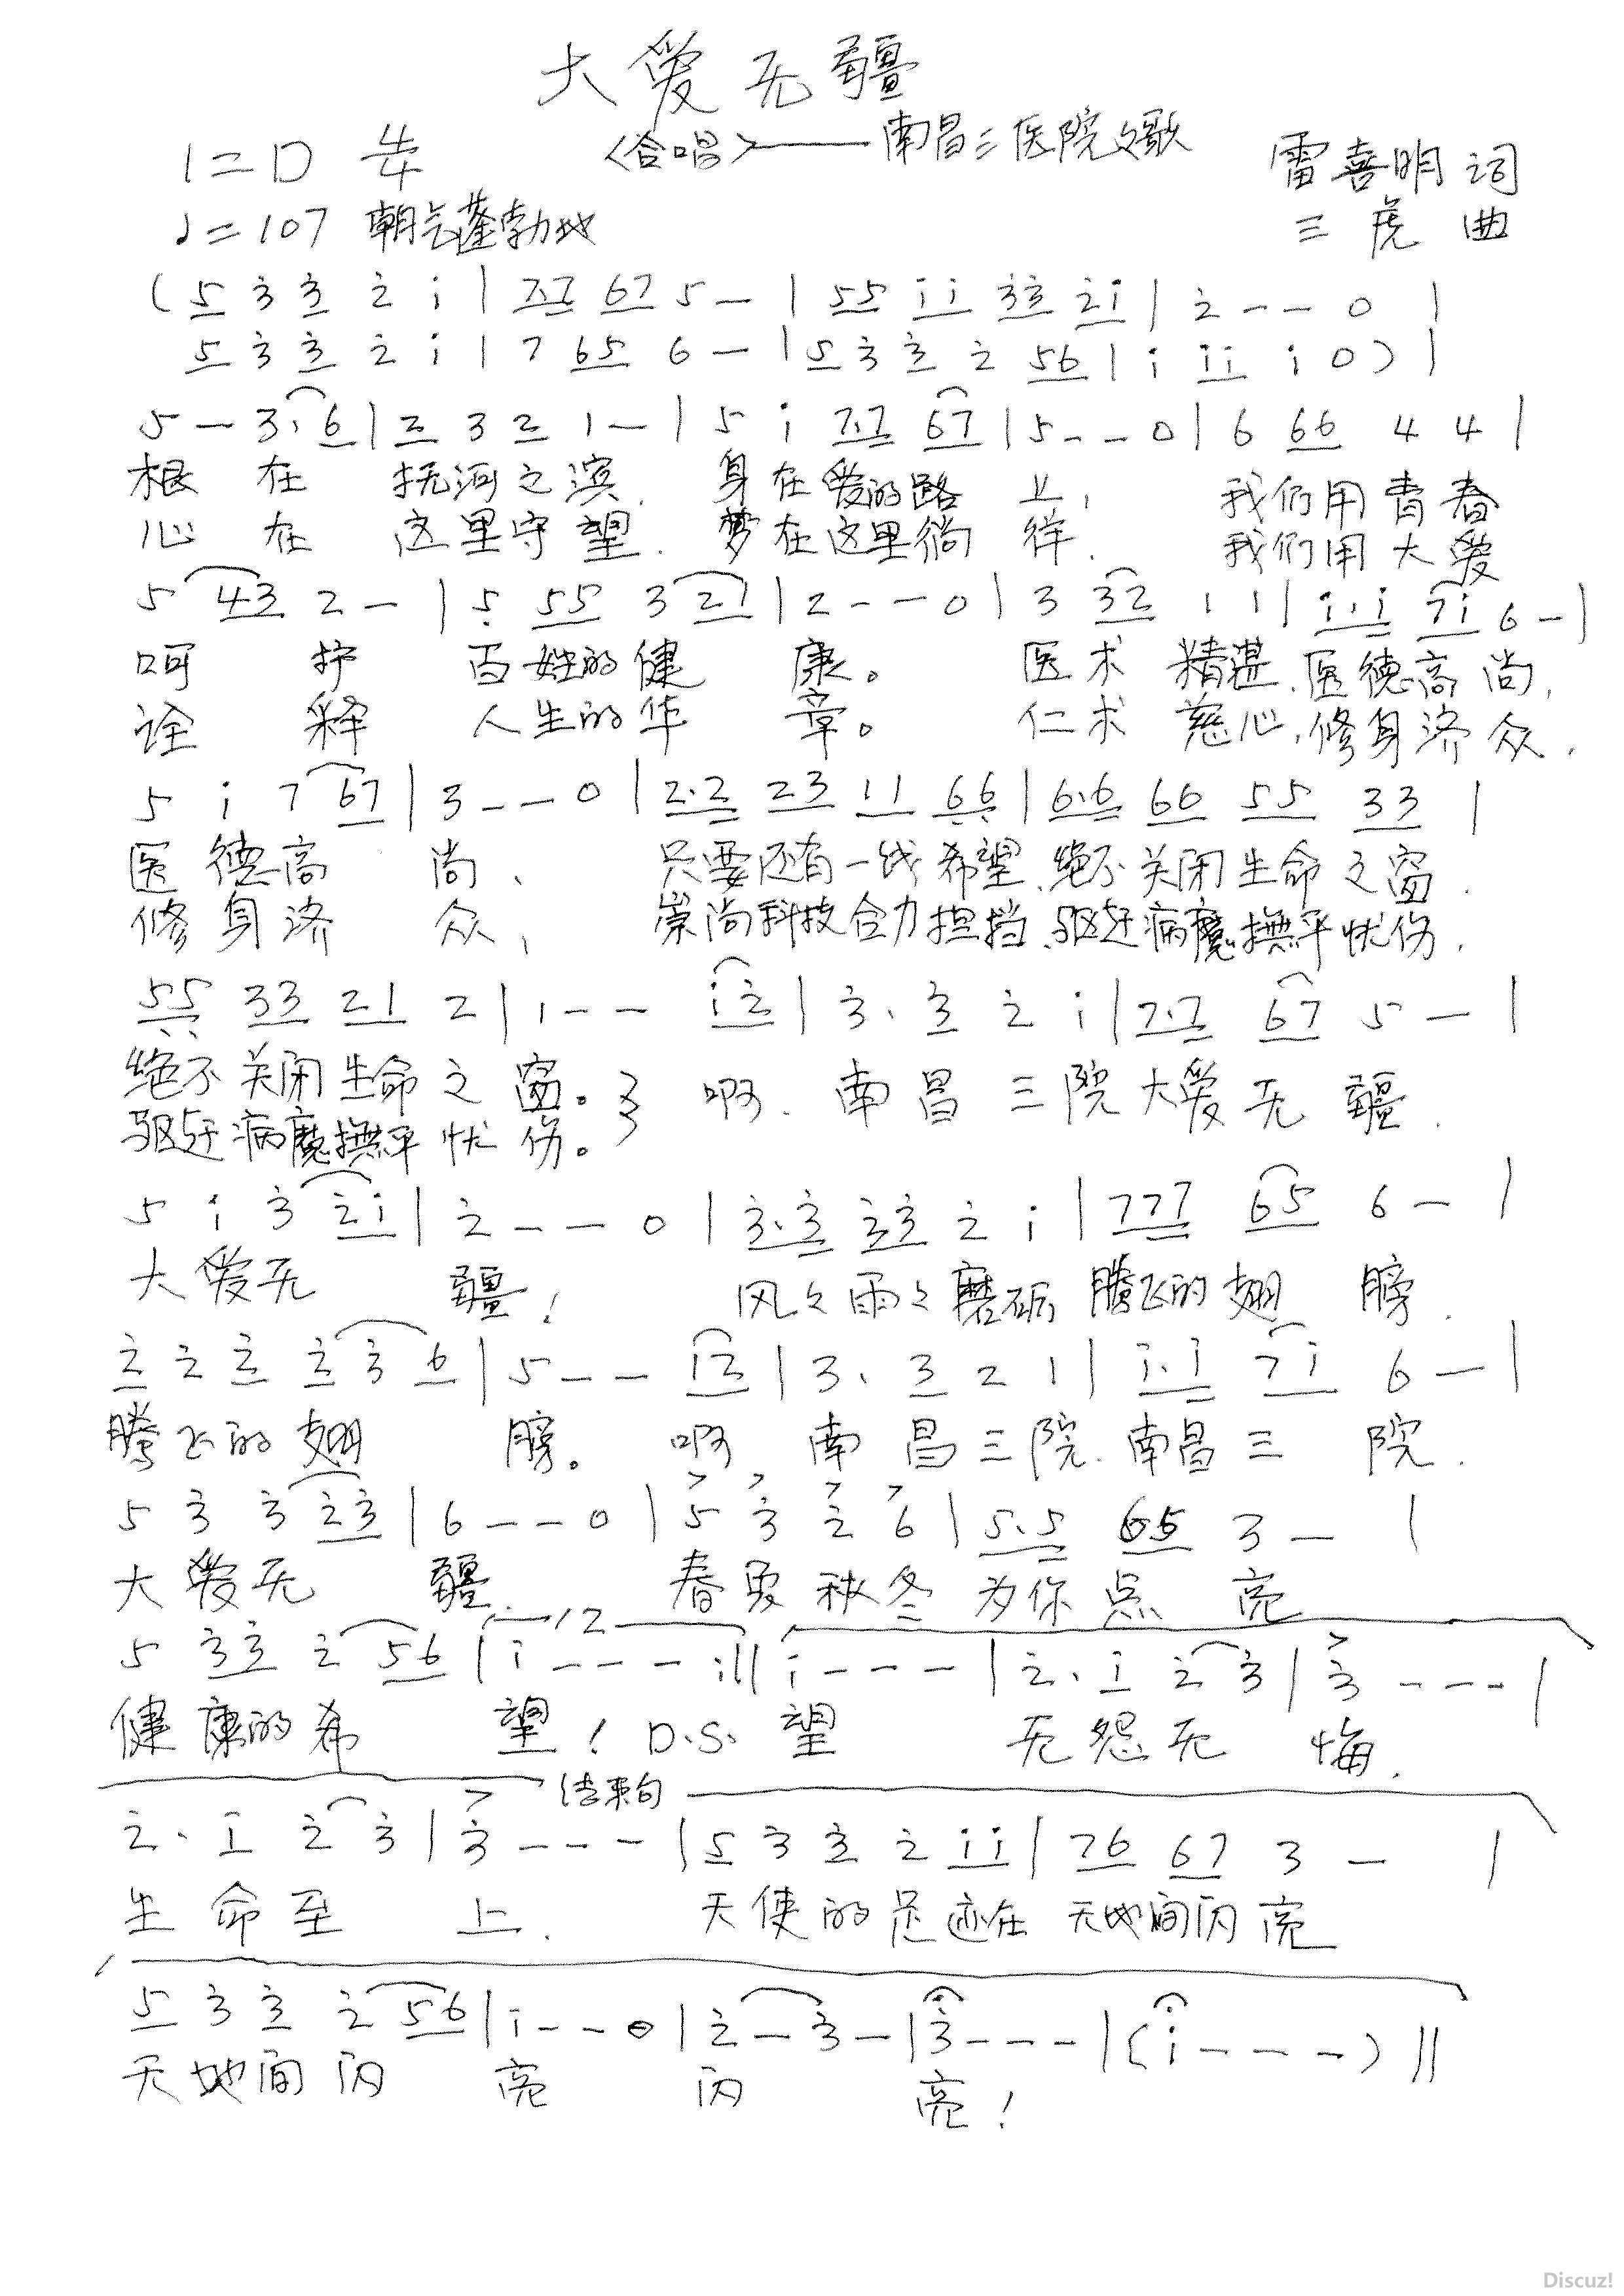 大爱无疆
1=D 4/4 〈合唱〉——南昌三医院之歌 雷喜明 词
♩=107 朝气蓬勃地 三虎 曲
(5 3̇ 3̇ 2̇ i | 7.7 67 5 — | 55 ii 3̇3̇ 2̇i | 2̇ — — 0 |
5 3̇ 3̇ 2̇ i | 7 65 6 — | 5 3̇ 3̇ 2̇ 56 | i ii i 0) |
5 — 3. 6 | 2 3 2 1 — | 5 i 7.7 67 | 5 — — 0 | 6 66 4 4 |
根 在 抚河之滨, 身在爱的路 上, 我们用青春
心 在 这里守望, 梦在这里徜 徉, 我们用大爱
5 43 2 — | 5̣ 55 3 21 | 2 — — 0 | 3 32 1 1 | i.i 7i 6 — |
呵 护 百姓的健 康。 医术 精湛,医德高尚,
诠 释 人生的华 章。 仁术 慈心,修身济众,
5 i 7 67 | 3 — — 0 | 2.2 23 11 6̣6̣ | 6.6 66 55 33 |
医德高 尚, 只要还有一线希望,绝不关闭生命之窗,
修身济 众, 崇尚科技合力担挡,驱赶病魔撫平忧伤,
5̣5̣ 33 21 2 | 1 — — i2̇ | 3̇. 3̇ 2̇ i | 7.7 67 5 — |
绝不关闭生命之窗。} 啊, 南昌三院大爱无疆,
驱赶病魔撫平忧伤。
5 i 3̇ 2̇i | 2̇ — — 0 | 3̇.3̇ 2̇3̇ 2̇ i | 777 65 6 — |
大爱无 疆! 风风雨雨磨砺腾飞的翅 膀,
2̇ 2̇ 2̇ 2̇ 3̇ 6 | 5 — — i2̇ | 3. 3 2 1 | i.i 7i 6 — |
腾飞的翅 膀。 啊 南昌三院,南昌三 院,
5 3̇ 3̇ 2̇3̇ | 6 — — 0 | 5 3̇ 2̇ 6 | 5.5 65 3 — |
大爱无 疆, 春夏秋冬为你点 亮
5 3̇3̇ 2̇ 56 | 1 2 i — — — :|| i — — — | 2̇. i 2̇ 3̇ | 3̇ — — — |
健康的希 望! D.S. 望 无怨无 悔,
结束句
2̇. i 2̇ 3̇ | 3̇ — — — | 5 3̇ 3̇ 2̇ ii | 76 67 3 — |
生命至 上, 天使的足迹在 天地间闪亮
5 3̇ 3̇ 2̇ 56 | i — — 0 | 2̇ — 3̇ — | 3̇ — — — | (i — — —) ||
天地间闪 亮 闪 亮!
Discuz!